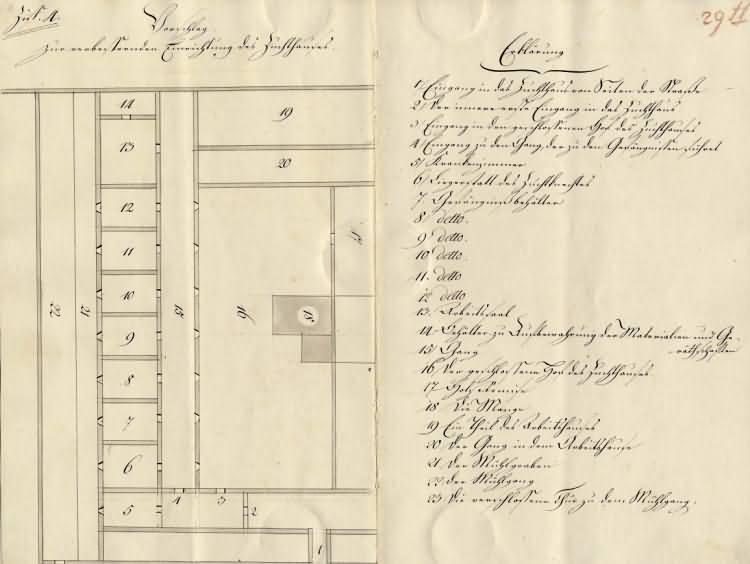 Zu N. A.
Vorschlag
zur verbessernden Einrichtung des Zuchthauses.
29
Erklärung
1) Eingang in das Zuchthaus von Seiten der Strasse
2) Der innere erste Eingang in das Zuchthaus
3 Eingang in den geschlossenen Hof des Zuchthauses
4) Eingang zu dem Gang, der zu den Gefängnissen führet
5) Krankenzimmer
6) Liegerstatt des Zuchtknechtes
7. Gefängniß behälter
8 detto.
9 detto.
10 detto.
11. detto
12 detto
13. Arbeitssaal
14. Behälter zu Aufbewahrung der Materialien und Ge-
räthschaften
15) Gang
16 Der geschlossene Hof des Zuchthauses
17 Holzremise
18 Die Mange
19 Ein Theil des Arbeitshauses
20 Der Gang in dem Arbeitshause
21 Der Mühlgraben
22 Der Mühlgang
23 Die verschlossene Thür zu dem Mühlgang.
14
13
12
11
10
9
8
7
6
5
22
21
15
16
17
18
19
20
4
3
2
1